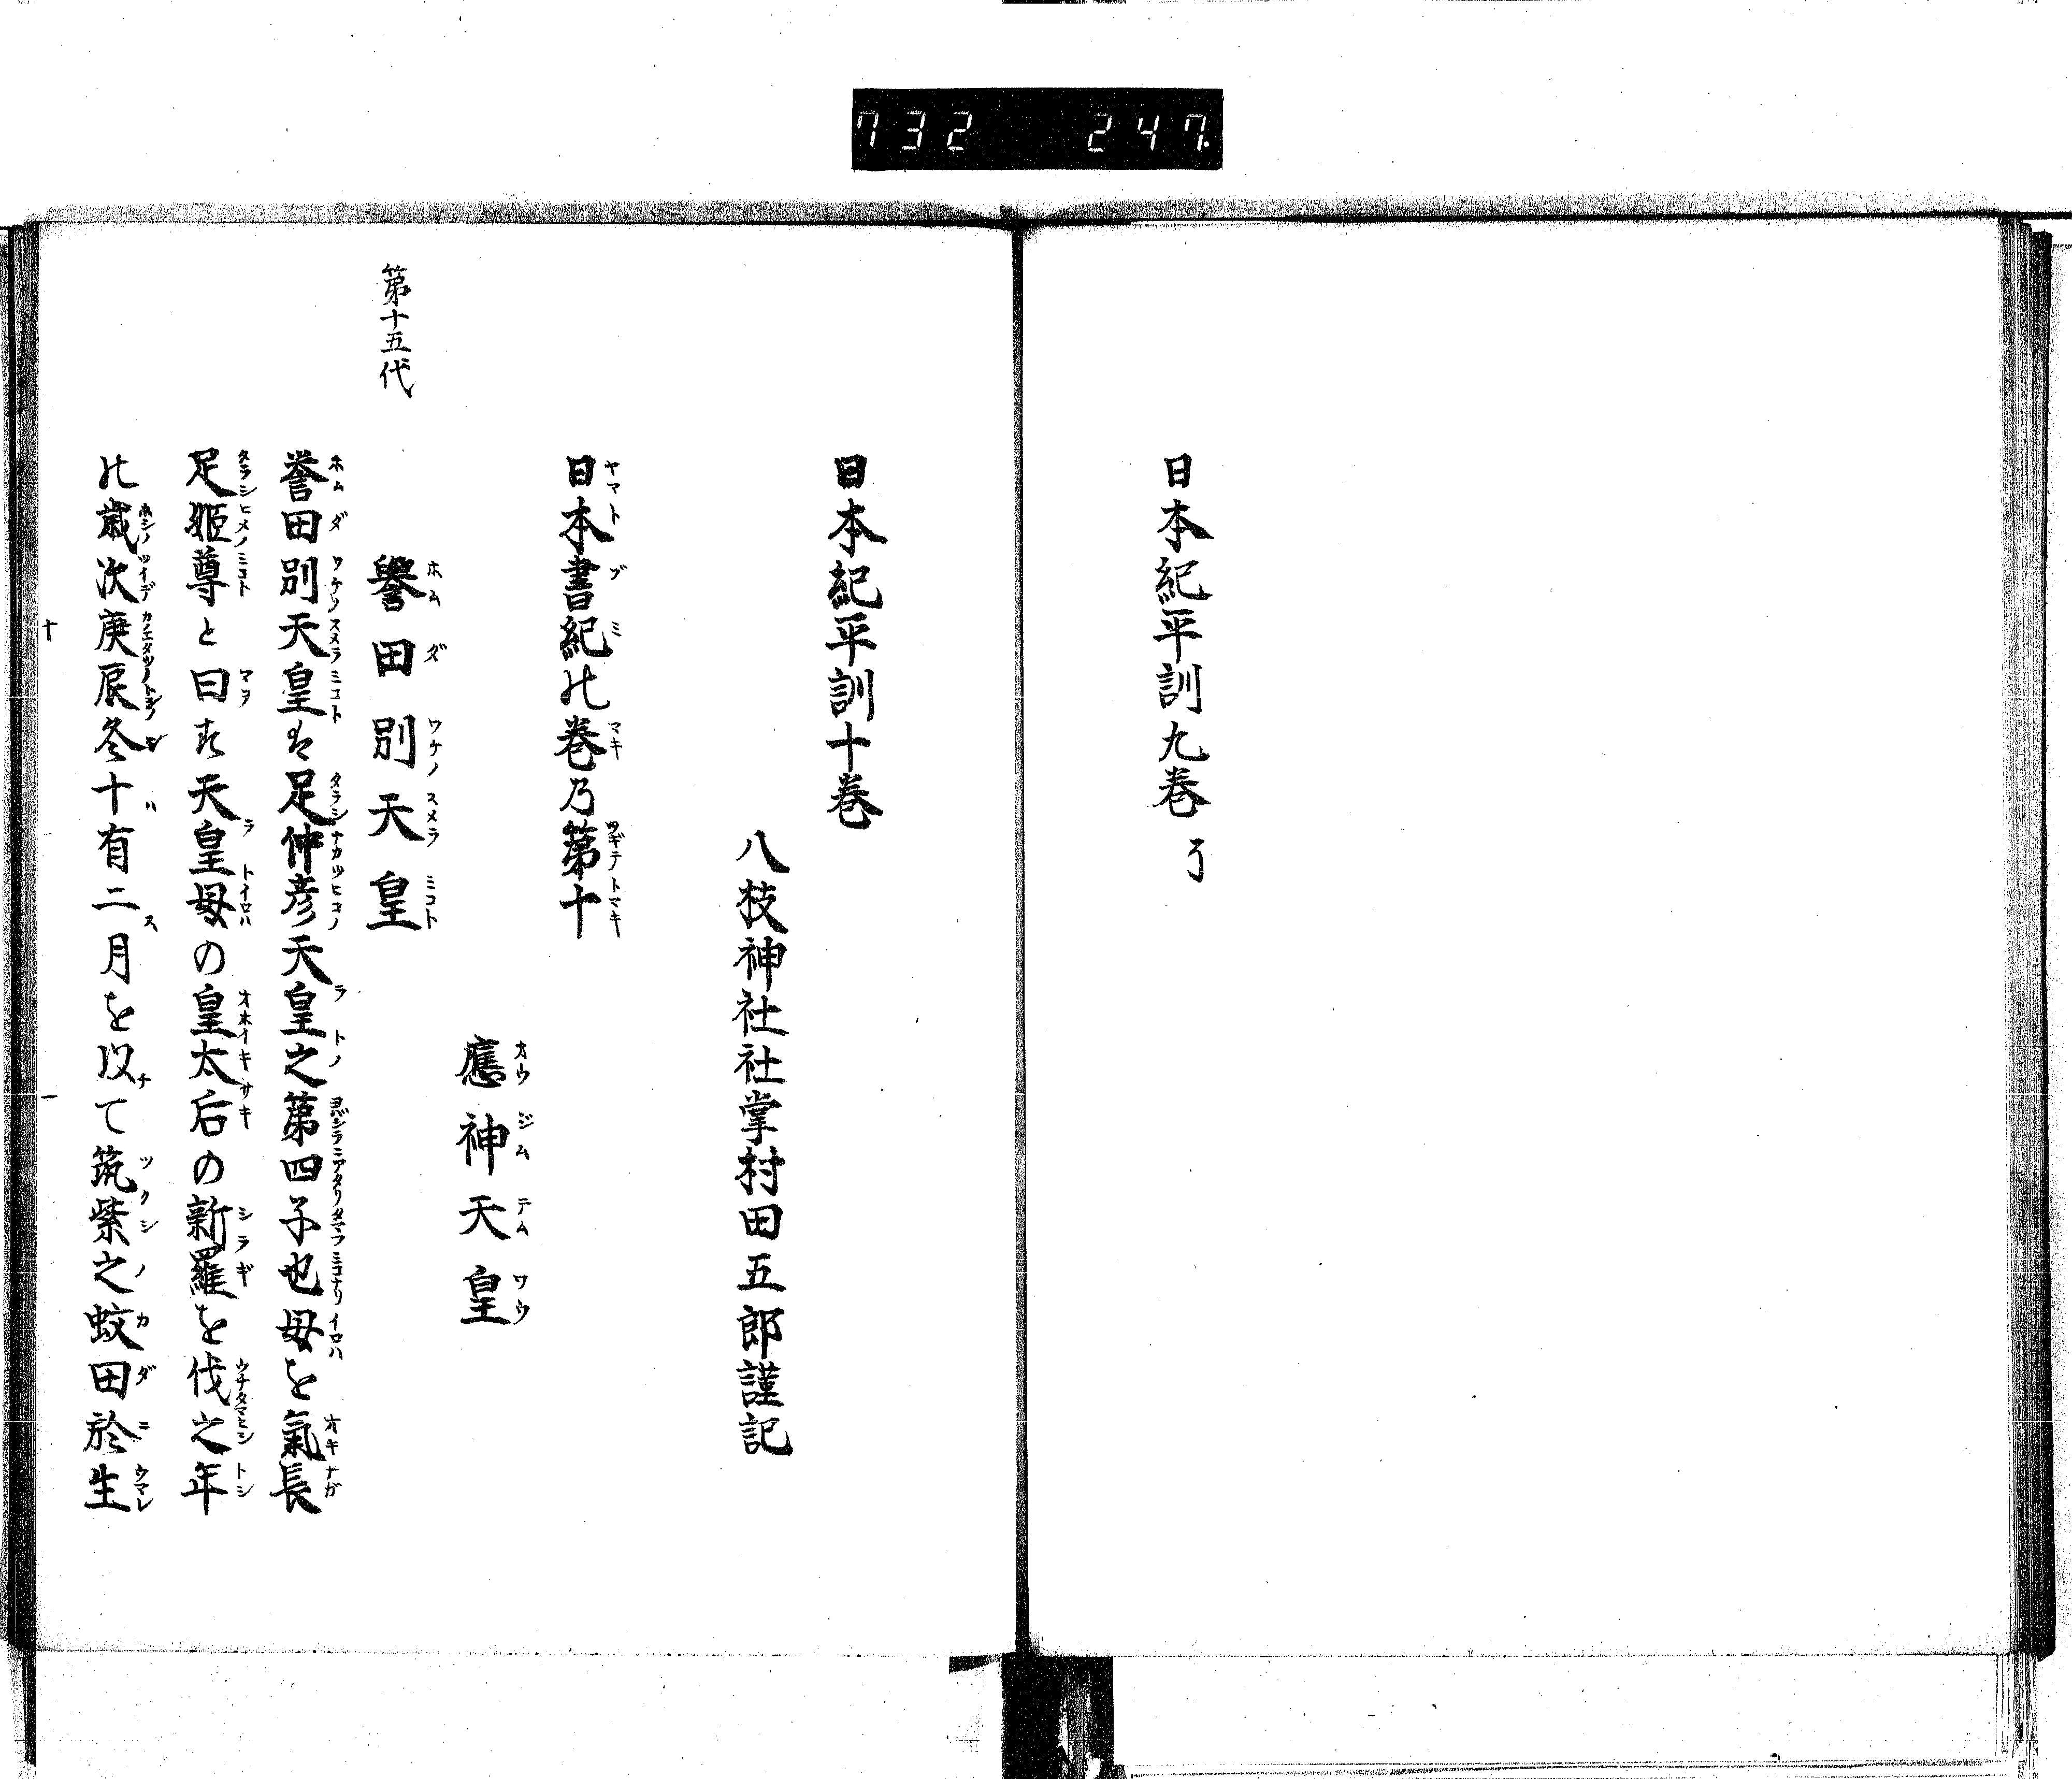 732 247
日本紀平訓九巻 了
日本紀平訓十巻
八枝神社社掌村田五郎謹記
日本書紀乃巻乃第十
應神天皇
譽田別天皇
第十五代
誉田別天皇は足仲彦天皇之第四子也母を氣長
足姬尊と曰す天皇母の皇太后の新羅を伐之年
歳次庚辰冬十有二月を以て筑紫之蚊田於生
十
一